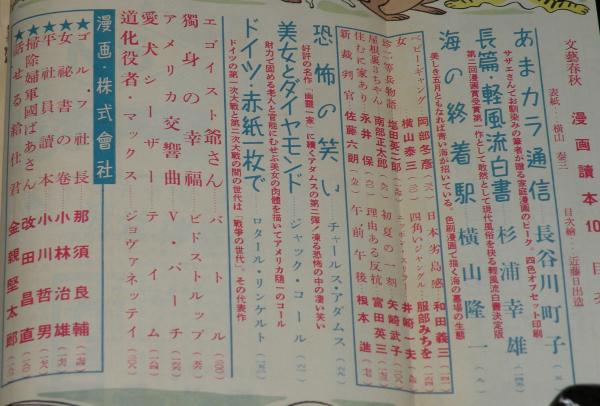 文藝春秋 漫画讀本 10
表紙…横山泰三
目次繪…近藤日出造
あまカラ通信 長谷川町子
サザエさんでお馴染みの筆者が贈る家庭漫画のピーク。四色オフセット印刷
長篇・軽風流白書 杉浦幸雄
第二回漫画賞受賞第一作として敢然として現代風俗を抉る軽風流白書決定版
海の終着駅 横山隆一
美しき五月ともなれば青い海が招いている。色刷漫画で描く海の墓場の生態
ベビー・ギャング 岡部冬彦
日本劣島感 和田義三
女 横山泰三
四角いジャングル 服部みちを
珍・二等兵物語 塩田英二郎
井崎一夫
屋根裏3ちゃん 南部正太郎
初夏の一刻 矢崎武子
住むに家あり 永井保
理由ある反抗 富田英三
新裁判官 佐藤六朗
午前午後 根本進
恐怖の笑い チャールス・アダムス
好評の名作「幽霊一家」に續くアダムスの第二彈!凍る恐怖の中の凄い笑い
美女とダイヤモンド ジャック・コール
財力で固める老人と官能にむせぶ美女の肉體を描いてアメリカ随一のコール
ドイツ・赤紙一枚で ロタール・リンケルト
ドイツの第一次大戰と第二次大戰の間の世代は「戰爭の世代」。その代表作
エゴイスト爺さん バトル
獨身の幸福 ビドストルップ
アメリカ交響曲 V・パーチ
愛犬シーザー テイム
道化役者・マックス ジョヴァネッティ
漫画・株式會社
★ゴルフ社長 那須良輔
★女祕書の卷 小林治雄
★平社員讀本 小川哲男
★掃除婦軍國ばあさん 改田昌直
★話せる給仕君 金親堅太郎